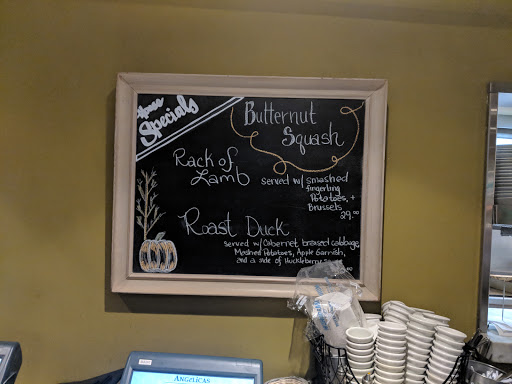 Specials
Butternut
Squash
Rack of
Lamb served w/ smashed
fingerling
Potatoes, +
Brussels
29.00
Roast Duck
served w/ Cabernet braised cabbage,
Mashed Potatoes, Apple Garnish,
and a side of Huckleberry
ANGELICAS